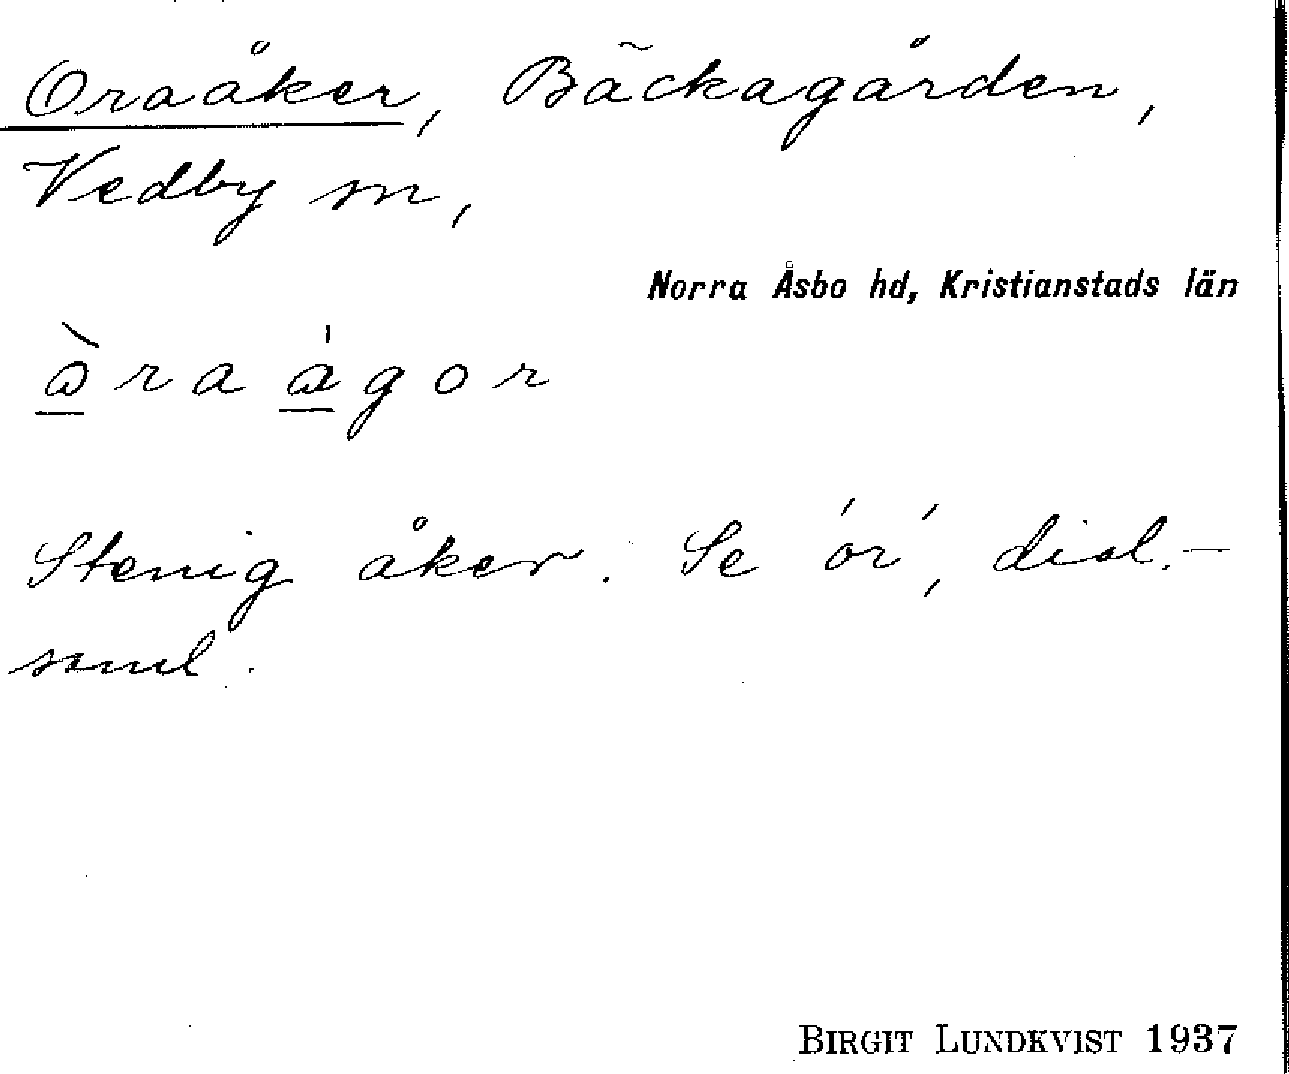 Oraåker, Bäckagården,
Vedby sn,
Norra Åsbo hd, Kristianstads län
ὰ̱ra á̱gor
Stenig åker. Se 'or', dial.-
saml.
BIRGIT LUNDKVIST 1937